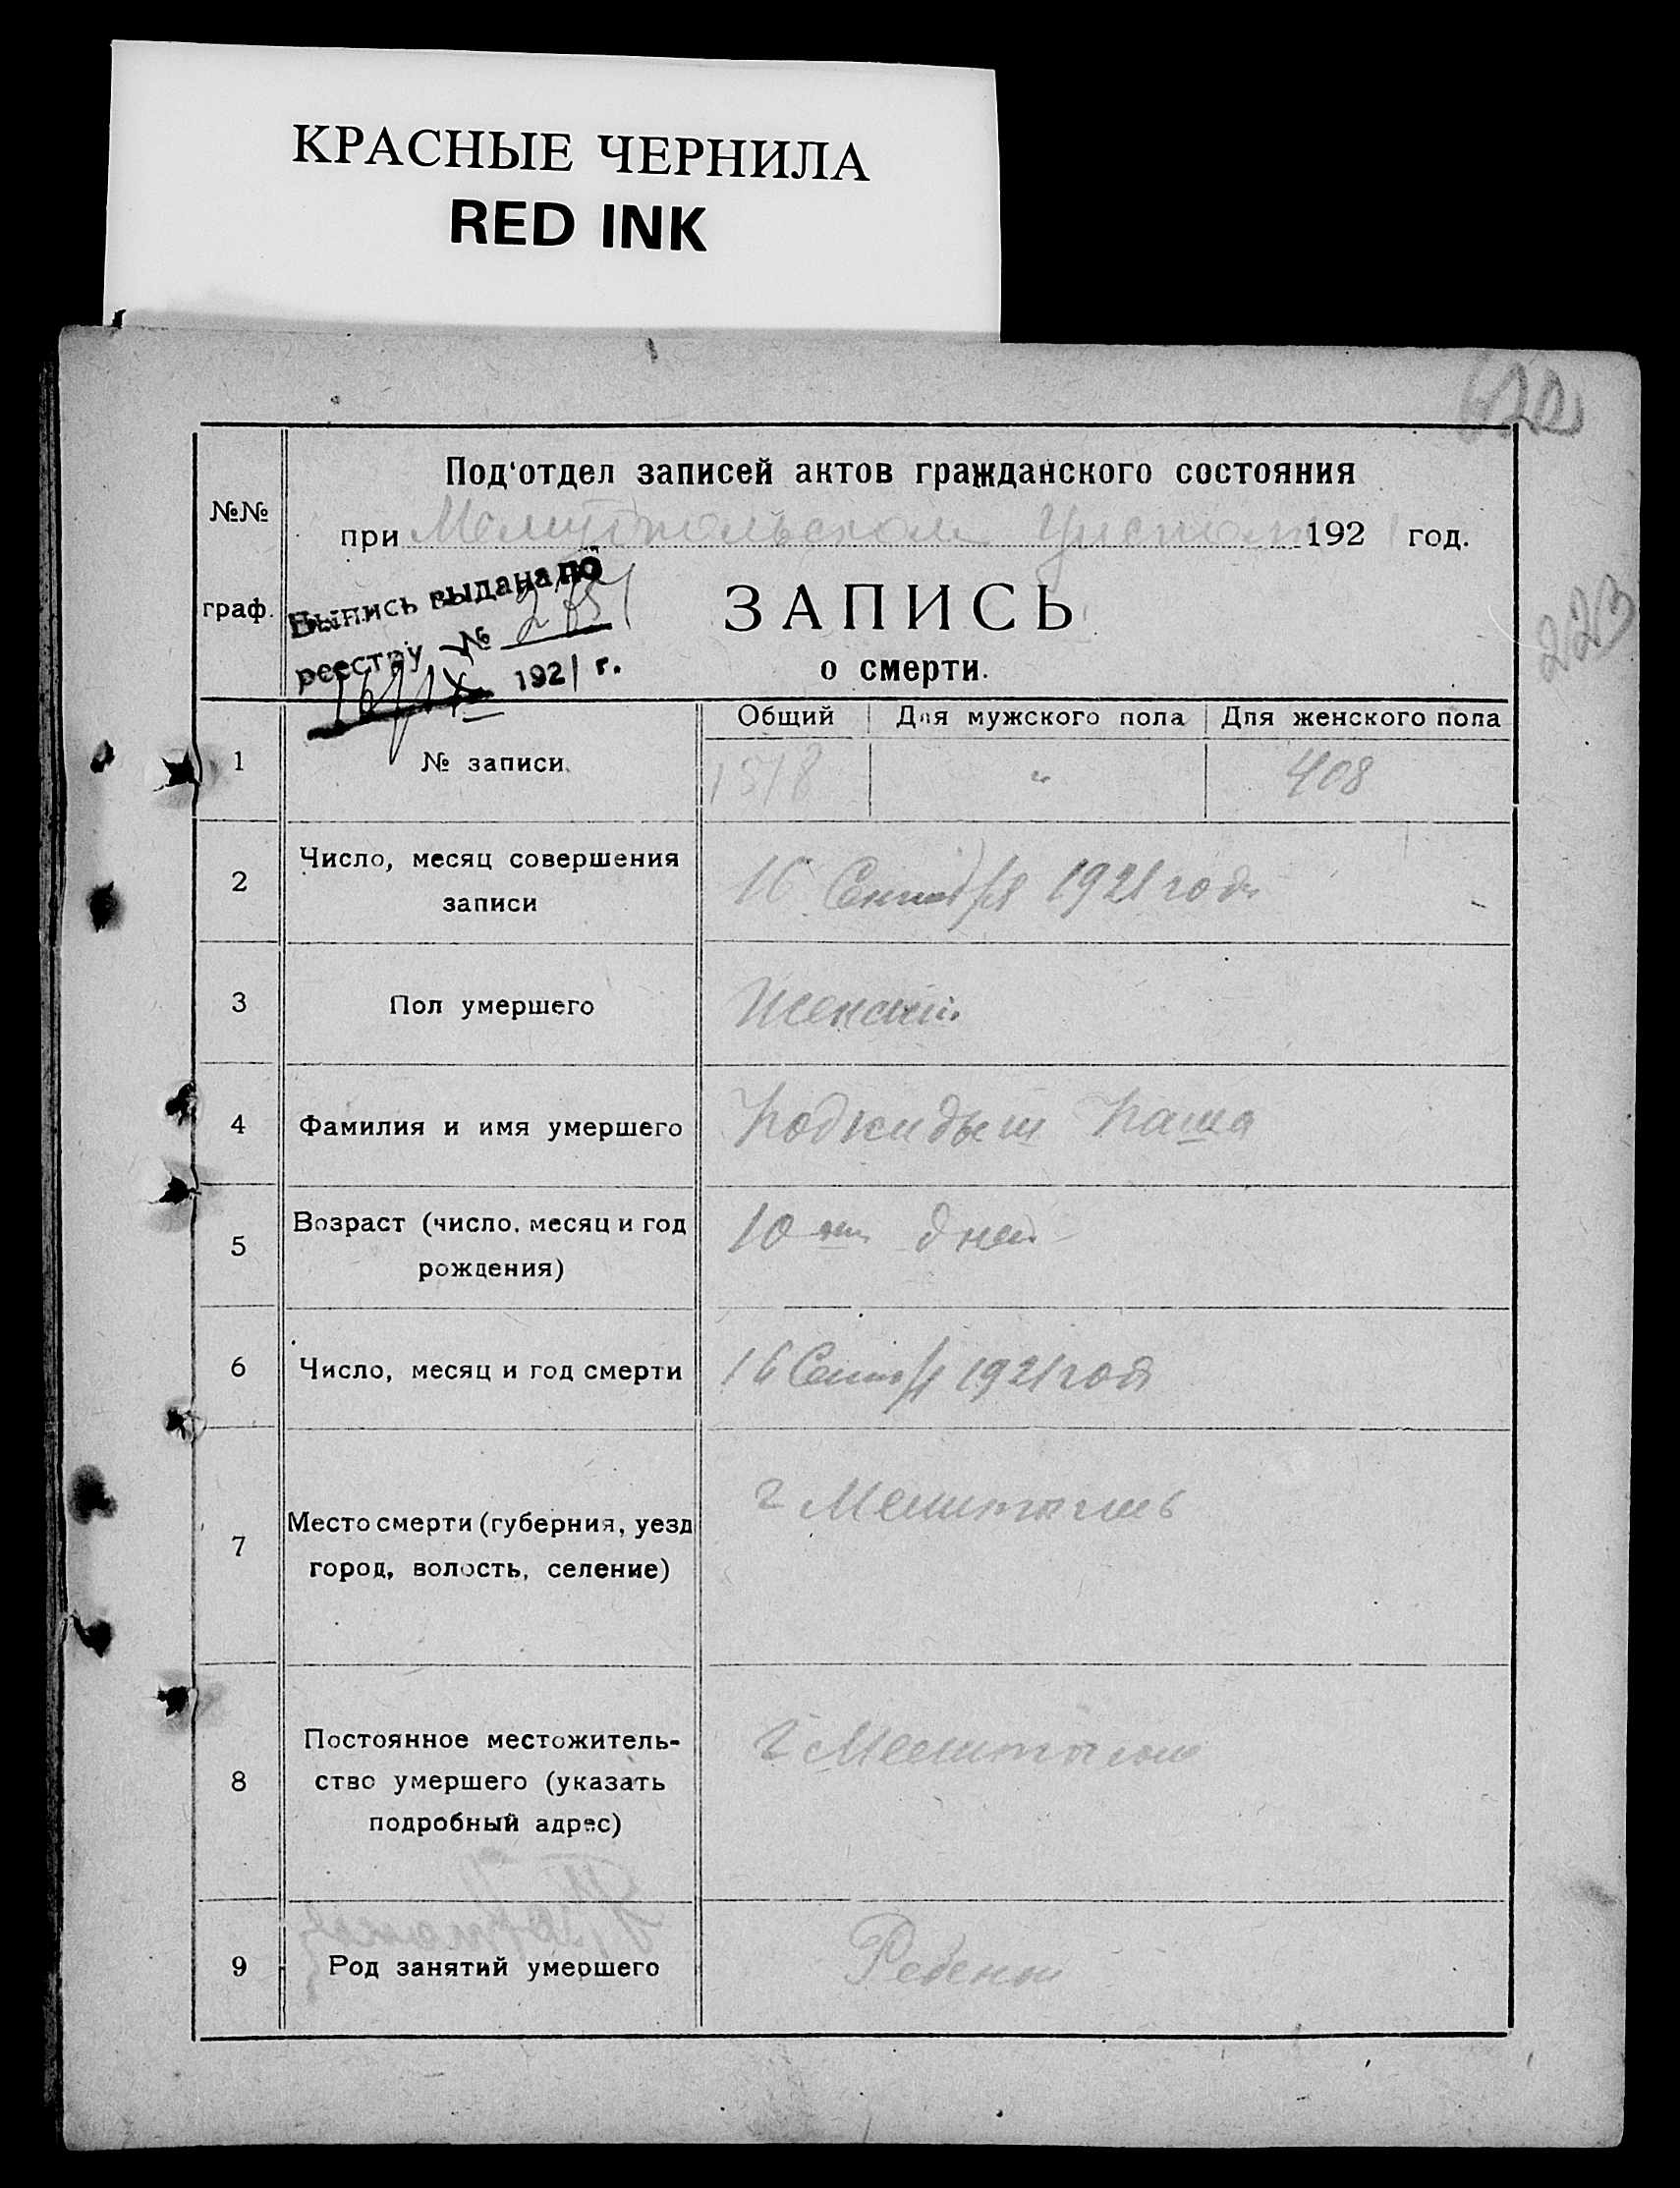 КРАСНЫЕ ЧЕРНИЛА
RED INK
Под'отдел записей актов гражданского состояния
№№
граф.
при Мелитопольском 1921 год.
Выпись выдана по
реестру №
16/IX 1921 г.
ЗАПИСЬ
о смерти.
Общий Для мужского пола Для женского пола
1 № записи. 1518 " 408
2 Число, месяц совершения
записи
16 Сентября 1921 года
3 Пол умершего Женский
4 Фамилия и имя умершего Подкидыш Паша
5 Возраст (число, месяц и год
рождения)
10 дней
6 Число, месяц и год смерти 16 Сентяб 1921 года
7 Место смерти (губерния, уезд
город, волость, селение)
г Мелитополь
8 Постоянное местожитель-
ство умершего (указать
подробный адрес)
г Мелитополь
9 Род занятий умершего Ребенок
223